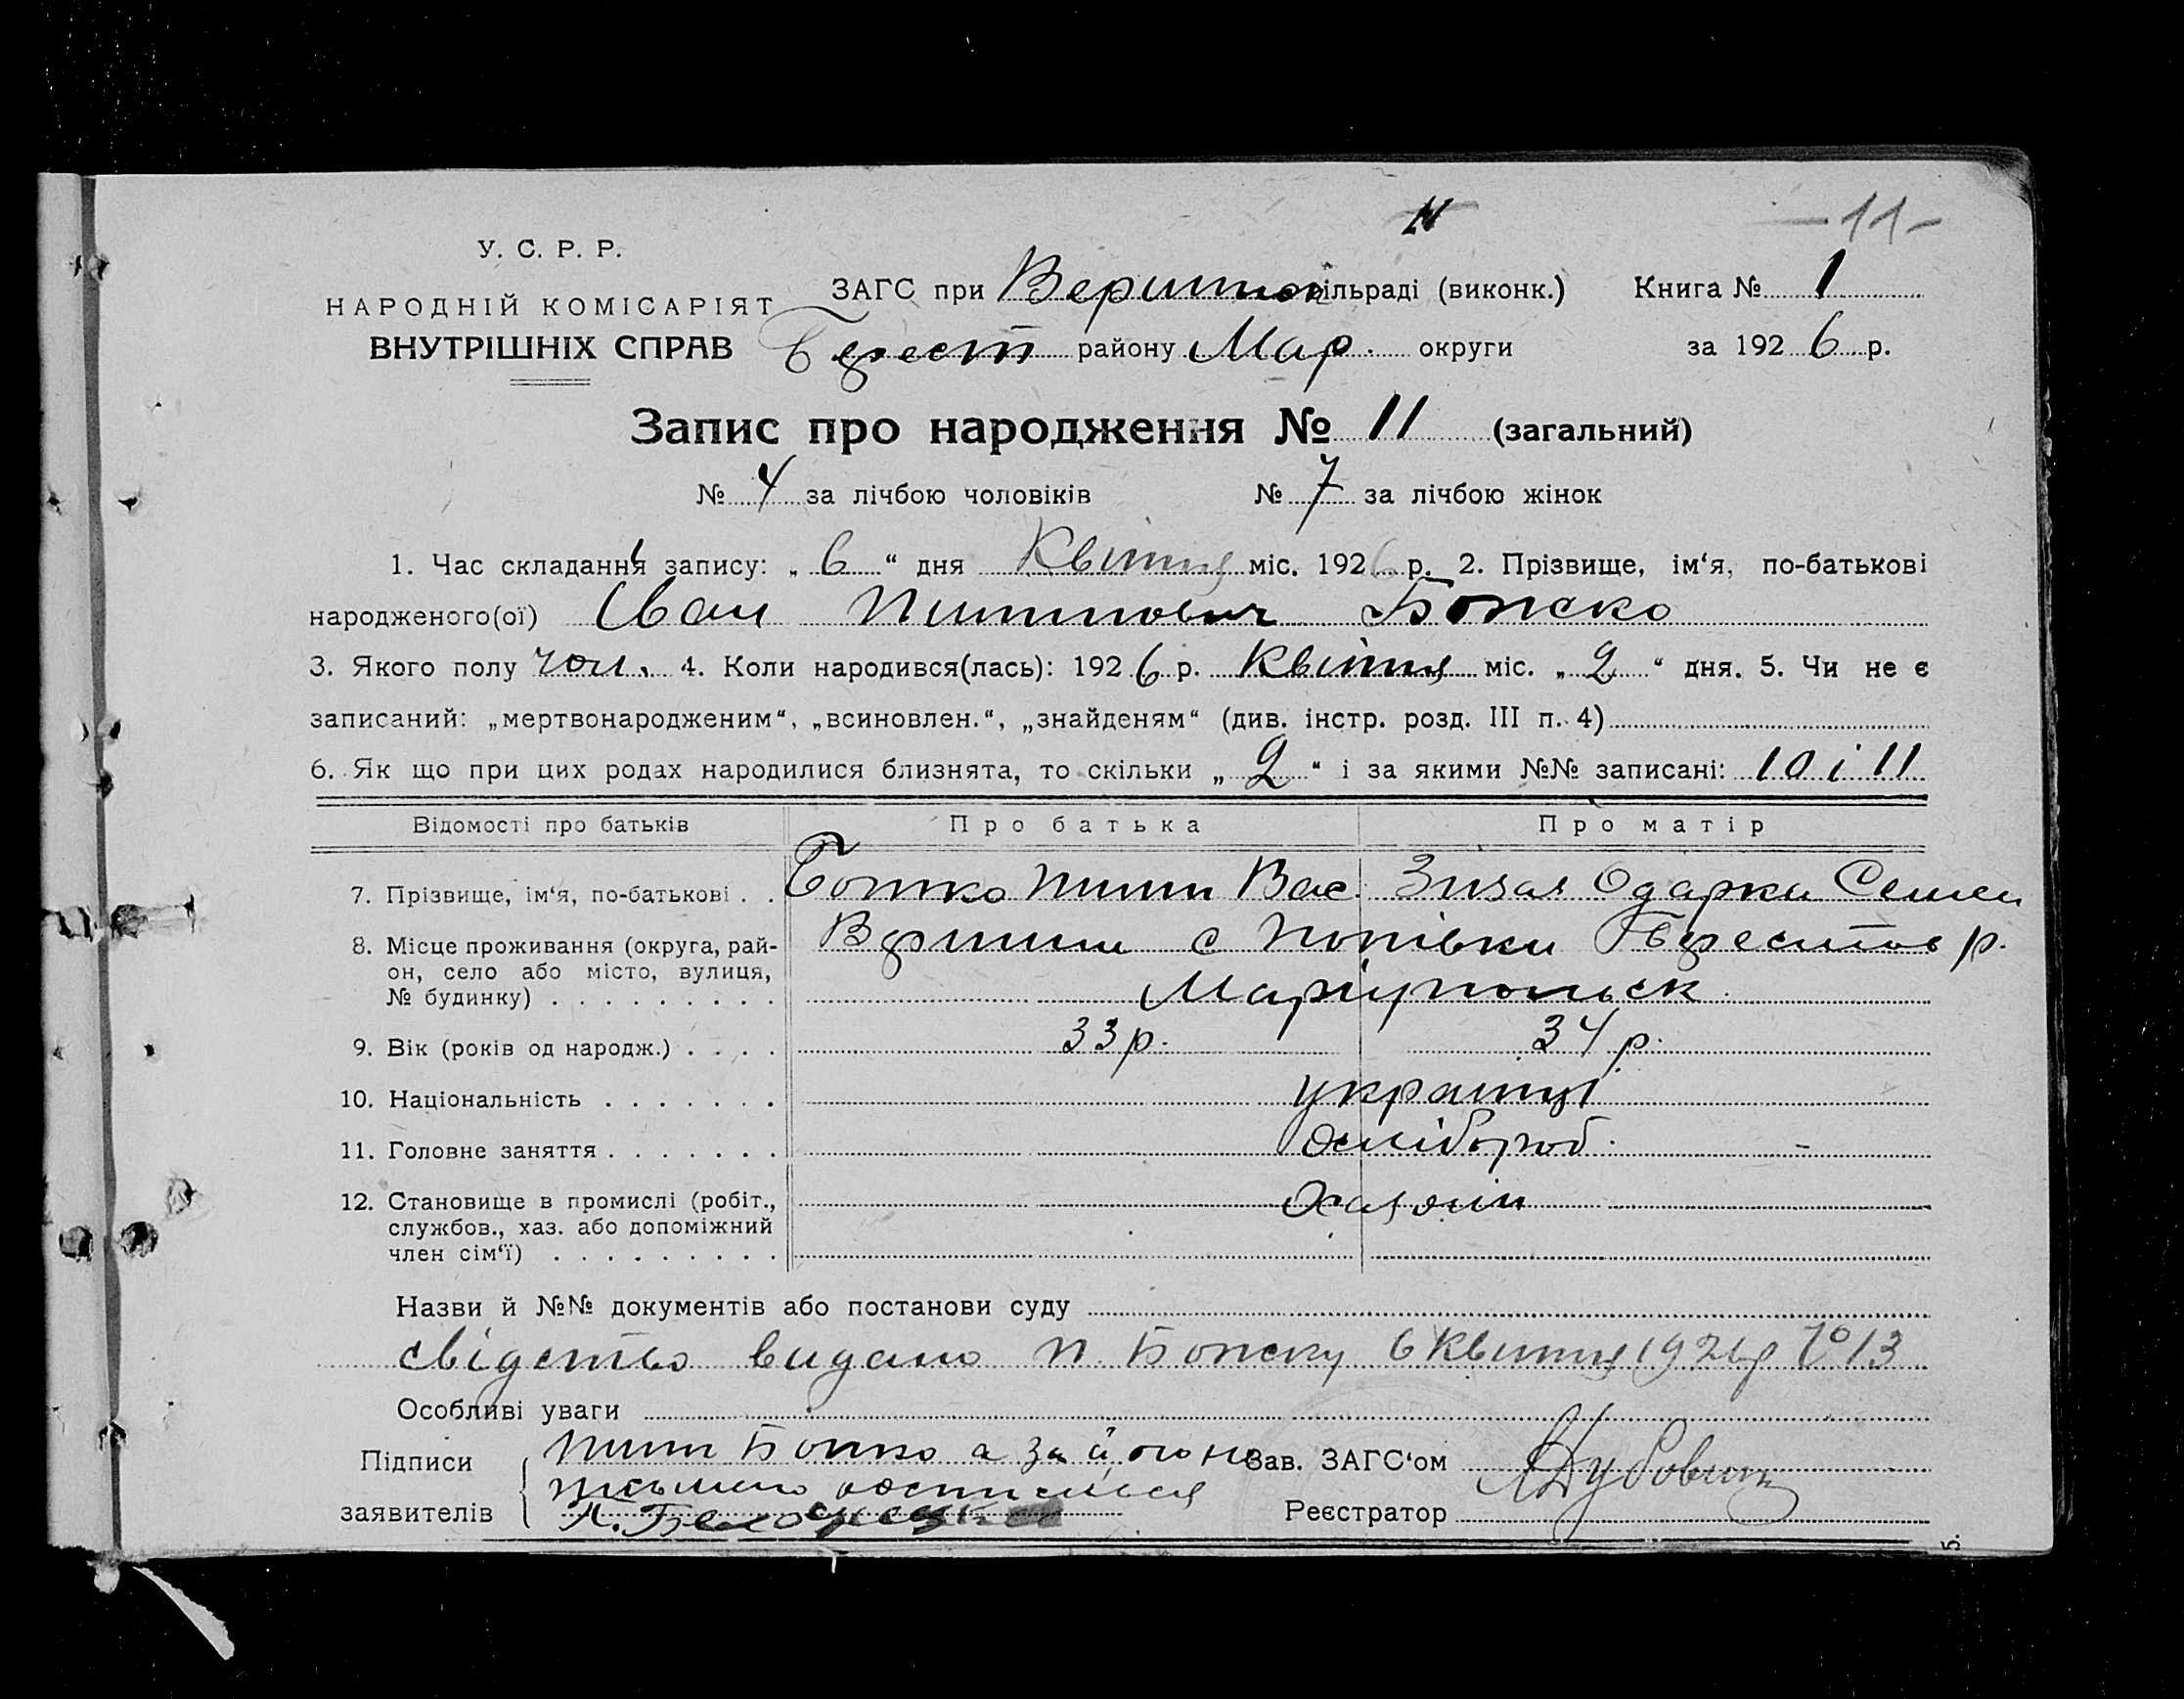 -11-
У. С. Р. Р.
НАРОДНІЙ КОМІСАРІЯТ
ВНУТРІШНІХ СПРАВ
ЗАГС при сільраді (виконк.) Книга № 1
Берест району Мар. округи за 1926 р.
Запис про народження № 11 (загальний)
№ 4 за лічбою чоловіків № 7 за лічбою жінок
1. Час складання запису: „ 6 “ дня Квітня міс. 1926 р. 2. Прізвище, ім‘я, по-батькові
народженого(ої) Іван
3. Якого полу чол. 4. Коли народився(лась): 1926 р. Квітня міс. „ 2 “ дня. 5. Чи не є
записаний: „мертвонародженим“, „всиновлен.“, „знайденям“ (див. інстр. розд. III п. 4)
6. Як що при цих родах народилися близнята, то скільки „ 2 “ і за якими №№ записані: 10 і 11
Відомості про батьків Про батька Про матір
7. Прізвище, ім‘я, по-батькові . . Вас. Одарка Семен
8. Місце проживання (округа, рай-
он, село або місто, вулиця,
№ будинку) . . . . . . . . . с Попівки Берестов р.
Маріупольск
9. Вік (років од народж.) . . . . 33 р. 34 р.
10. Національність . . . . . . . українці
11. Головне заняття . . . . . . . хлібороб. -
12. Становище в промислі (робіт.,
службов., хаз. або допоміжний
член сім‘ї) . . . . . . . . . Хазяїн
Назви й №№ документів або постанови суду
свідетво видано П. 6 Квітня 1926 р № 13
Особливі уваги
Підписи
заявителів
а за його не
письмен.
Зав. ЗАГС‘ом
Реєстратор
5.